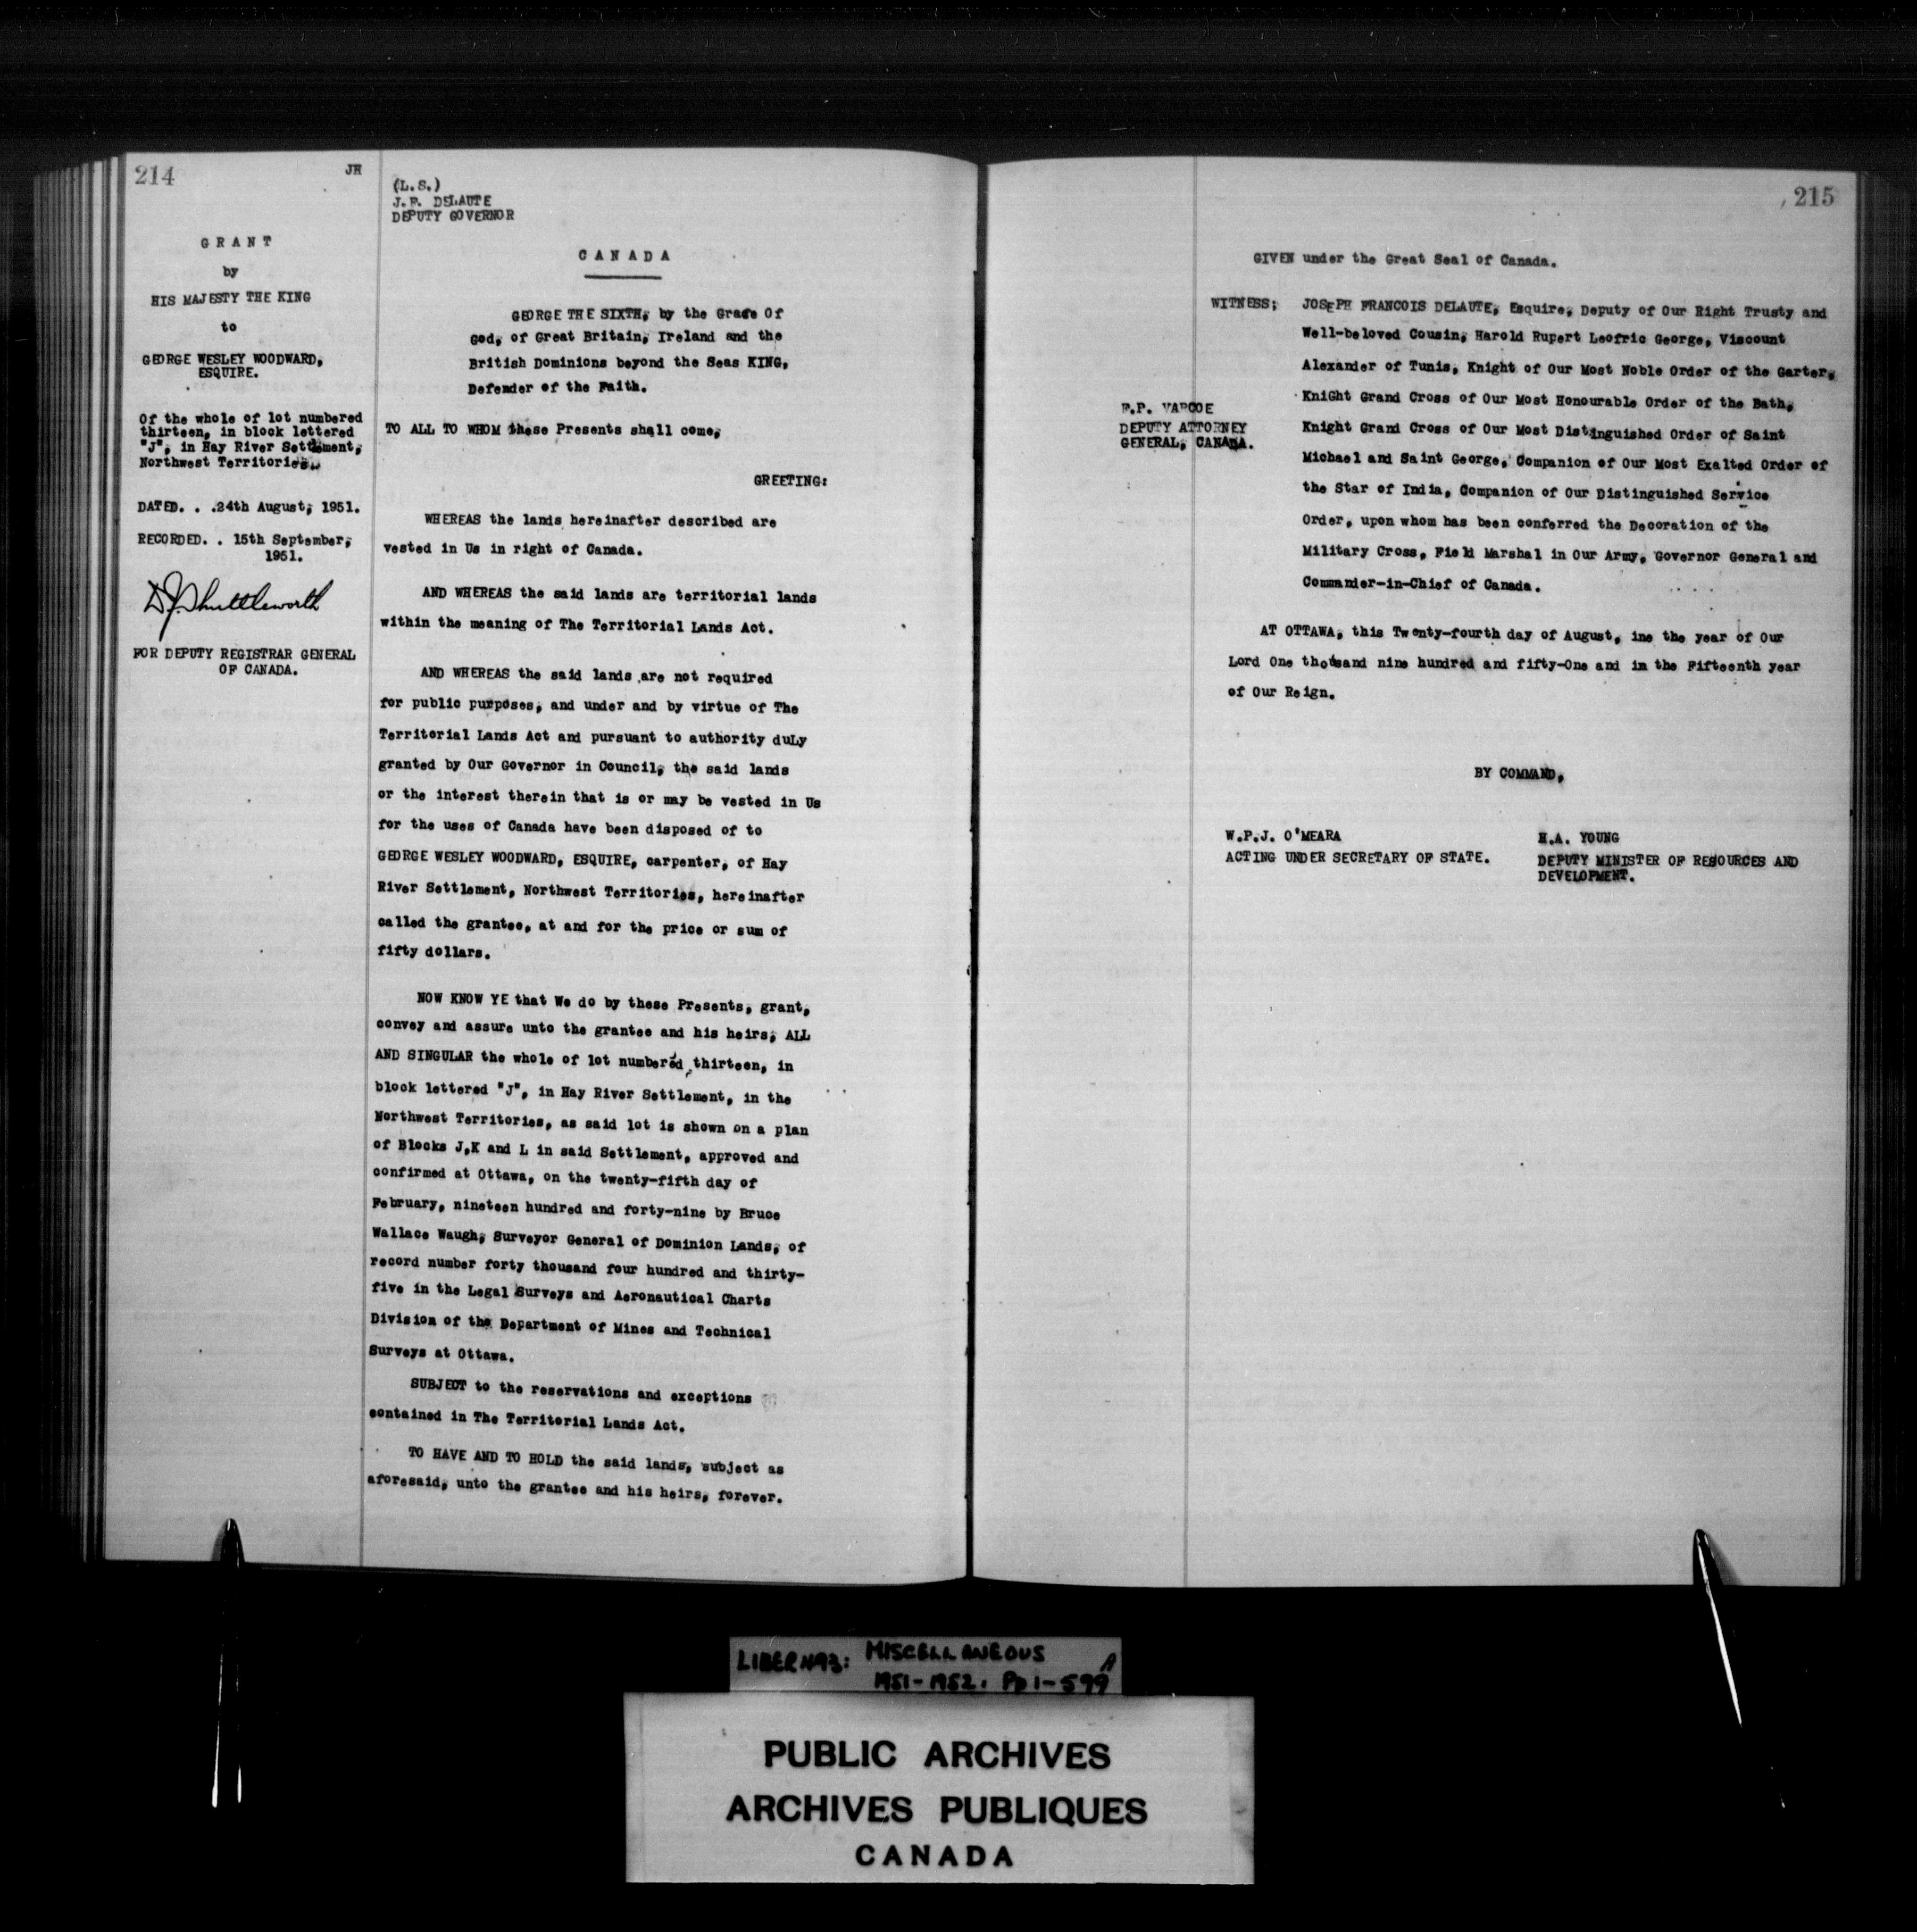 214
JH
GRANT
by
HIS MAJESTY THE KING
to
GEORGE WESLEY WOODWARD,
ESQUIRE.
Of the whole of lot numbered
thirteen, in block lettered
"J", in Hay River Settlement,
Northwest Territories.
DATED. . .24th August, 1951.
RECORDED. . 15th September,
1951.
D J Shuttleworth
FOR DEPUTY REGISTRAR GENERAL
OF CANADA.
(L.S.)
J.F. DELAUTE
DEPUTY GOVERNOR
CANADA
GEORGE THE SIXTH, by the Grace Of
God, of Great Britain, Ireland and the
British Dominions beyond the Seas KING,
Defender of the Faith.
TO ALL TO WHOM these Presents shall come,
GREETING:
WHEREAS the lands hereinafter described are
vested in Us in right of Canada.
AND WHEREAS the said lands are territorial lands
within the meaning of The Territorial Lands Act.
AND WHEREAS the said lands are not required
for public purposes, and under and by virtue of The
Territorial Lands Act and pursuant to authority duLy
granted by Our Governor in Council, the said lands
or the interest therein that is or may be vested in Us
for the uses of Canada have been disposed of to
GEORGE WESLEY WOODWARD, ESQUIRE, carpenter, of Hay
River Settlement, Northwest Territories, hereinafter
called the grantee, at and for the price or sum of
fifty dollars.
NOW KNOW YE that We do by these Presents, grant,
convey and assure unto the grantee and his heirs, ALL
AND SINGULAR the whole of lot numbered thirteen, in
block lettered "J", in Hay River Settlement, in the
Northwest Territories, as said lot is shown on a plan
of Blocks J,K and L in said Settlement, approved and
confirmed at Ottawa, on the twenty-fifth day of
February, nineteen hundred and forty-nine by Bruce
Wallace Waugh, Surveyor General of Dominion Lands, of
record number forty thousand four hundred and thirty-
five in the Legal Surveys and Aeronautical Charts
Division of the Department of Mines and Technical
Surveys at Ottawa.
SUBJECT to the reservations and exceptions
contained in The Territorial Lands Act.
TO HAVE AND TO HOLD the said lands, subject as
aforesaid, unto the grantee and his heirs, forever.
215
GIVEN under the Great Seal of Canada.
F.P. VARCOE
DEPUTY ATTORNEY
GENERAL, CANADA.
WITNESS; JOSEPH FRANCOIS DELAUTE, Esquire, Deputy of Our Right Trusty and
Well-beloved Cousin, Harold Rupert Leofric George, Viscount
Alexander of Tunis, Knight of Our Most Noble Order of the Garter,
KniGht Grand Cross of Our Most Honourable Order of the Bath,
Knight Grand Cross of Our Most Distinguished Order of Saint
Michael and Saint George, Companion of Our Most Exalted Order of
the Star of India, Companion of Our Distinguished Service
Order, upon whom has been conferred the Decoration of the
Military Cross, Field Marshal in Our Army, Governor General and
Commander-in-Chief of Canada.
AT OTTAWA, this Twenty-fourth day of August, ine the year of Our
Lord One thousand nine hundred and fifty-One and in the Fifteenth year
of Our Reign.
BY COMMAND,
W.P.J. O'MEARA
ACTING UNDER SECRETARY OF STATE.
H.A. YOUNG
DEPUTY MINISTER OF RESOURCES AND
DEVELOPMENT.
LIBER 493: MISCELLANEOUS
1951-1952. Pp 1-599A
PUBLIC ARCHIVES
ARCHIVES PUBLIQUES
CANADA